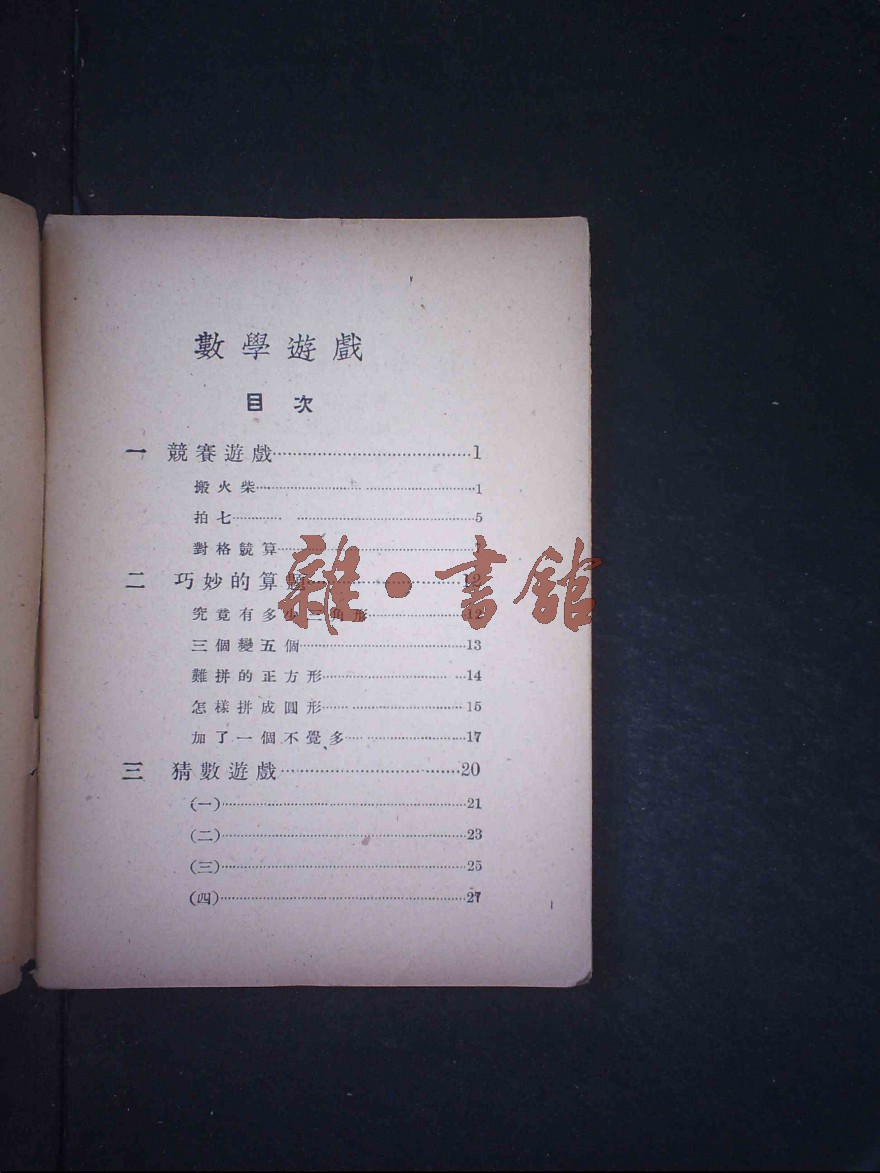 數學遊戲
目次
一 競賽遊戲……………………………1
搬火柴……………………………1
拍七……………………………5
對格競算……………………………
二 巧妙的算題……………………………12
究竟有多少三角形……………………………12
三個變五個……………………………13
難拼的正方形……………………………14
怎樣拼成圓形……………………………15
加了一個不覺多……………………………17
三 猜數遊戲……………………………20
(一)……………………………21
(二)……………………………23
(三)……………………………25
(四)……………………………27
雜·書館